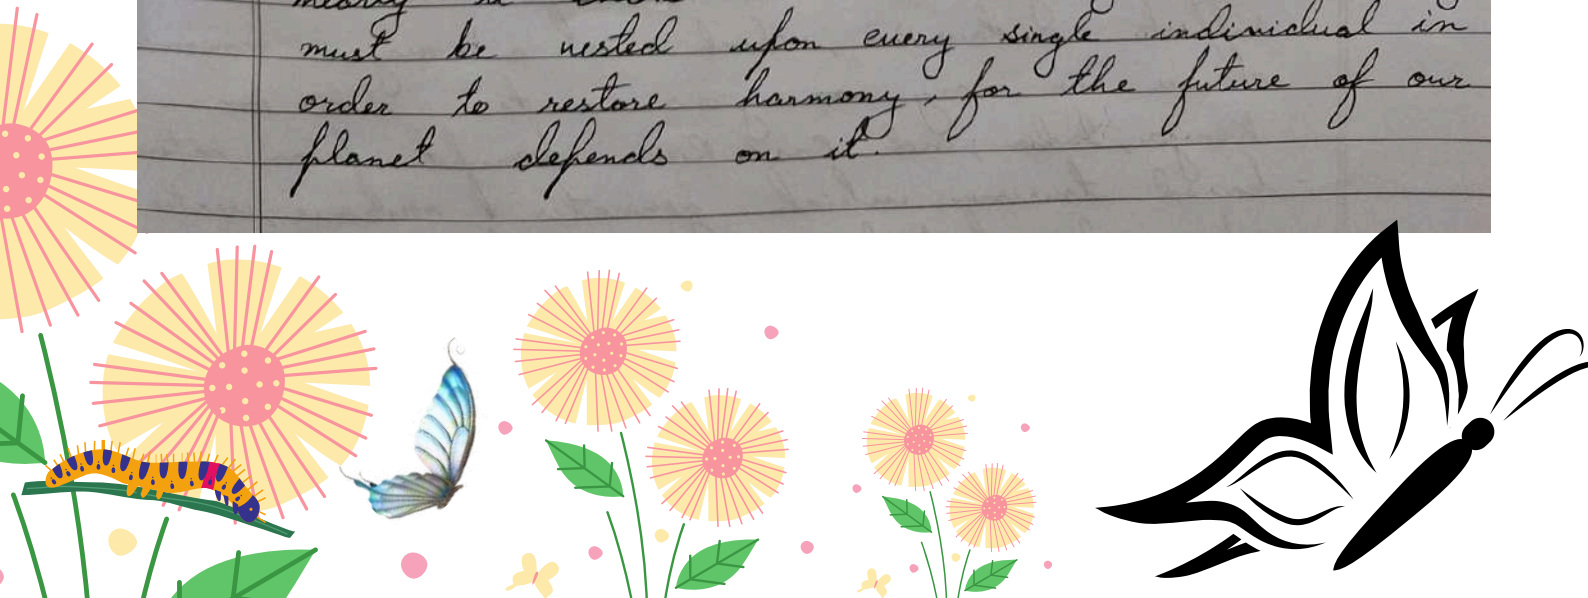 must be vested upon every single individual in
order to restore harmony, for the future of our
planet depends on it.